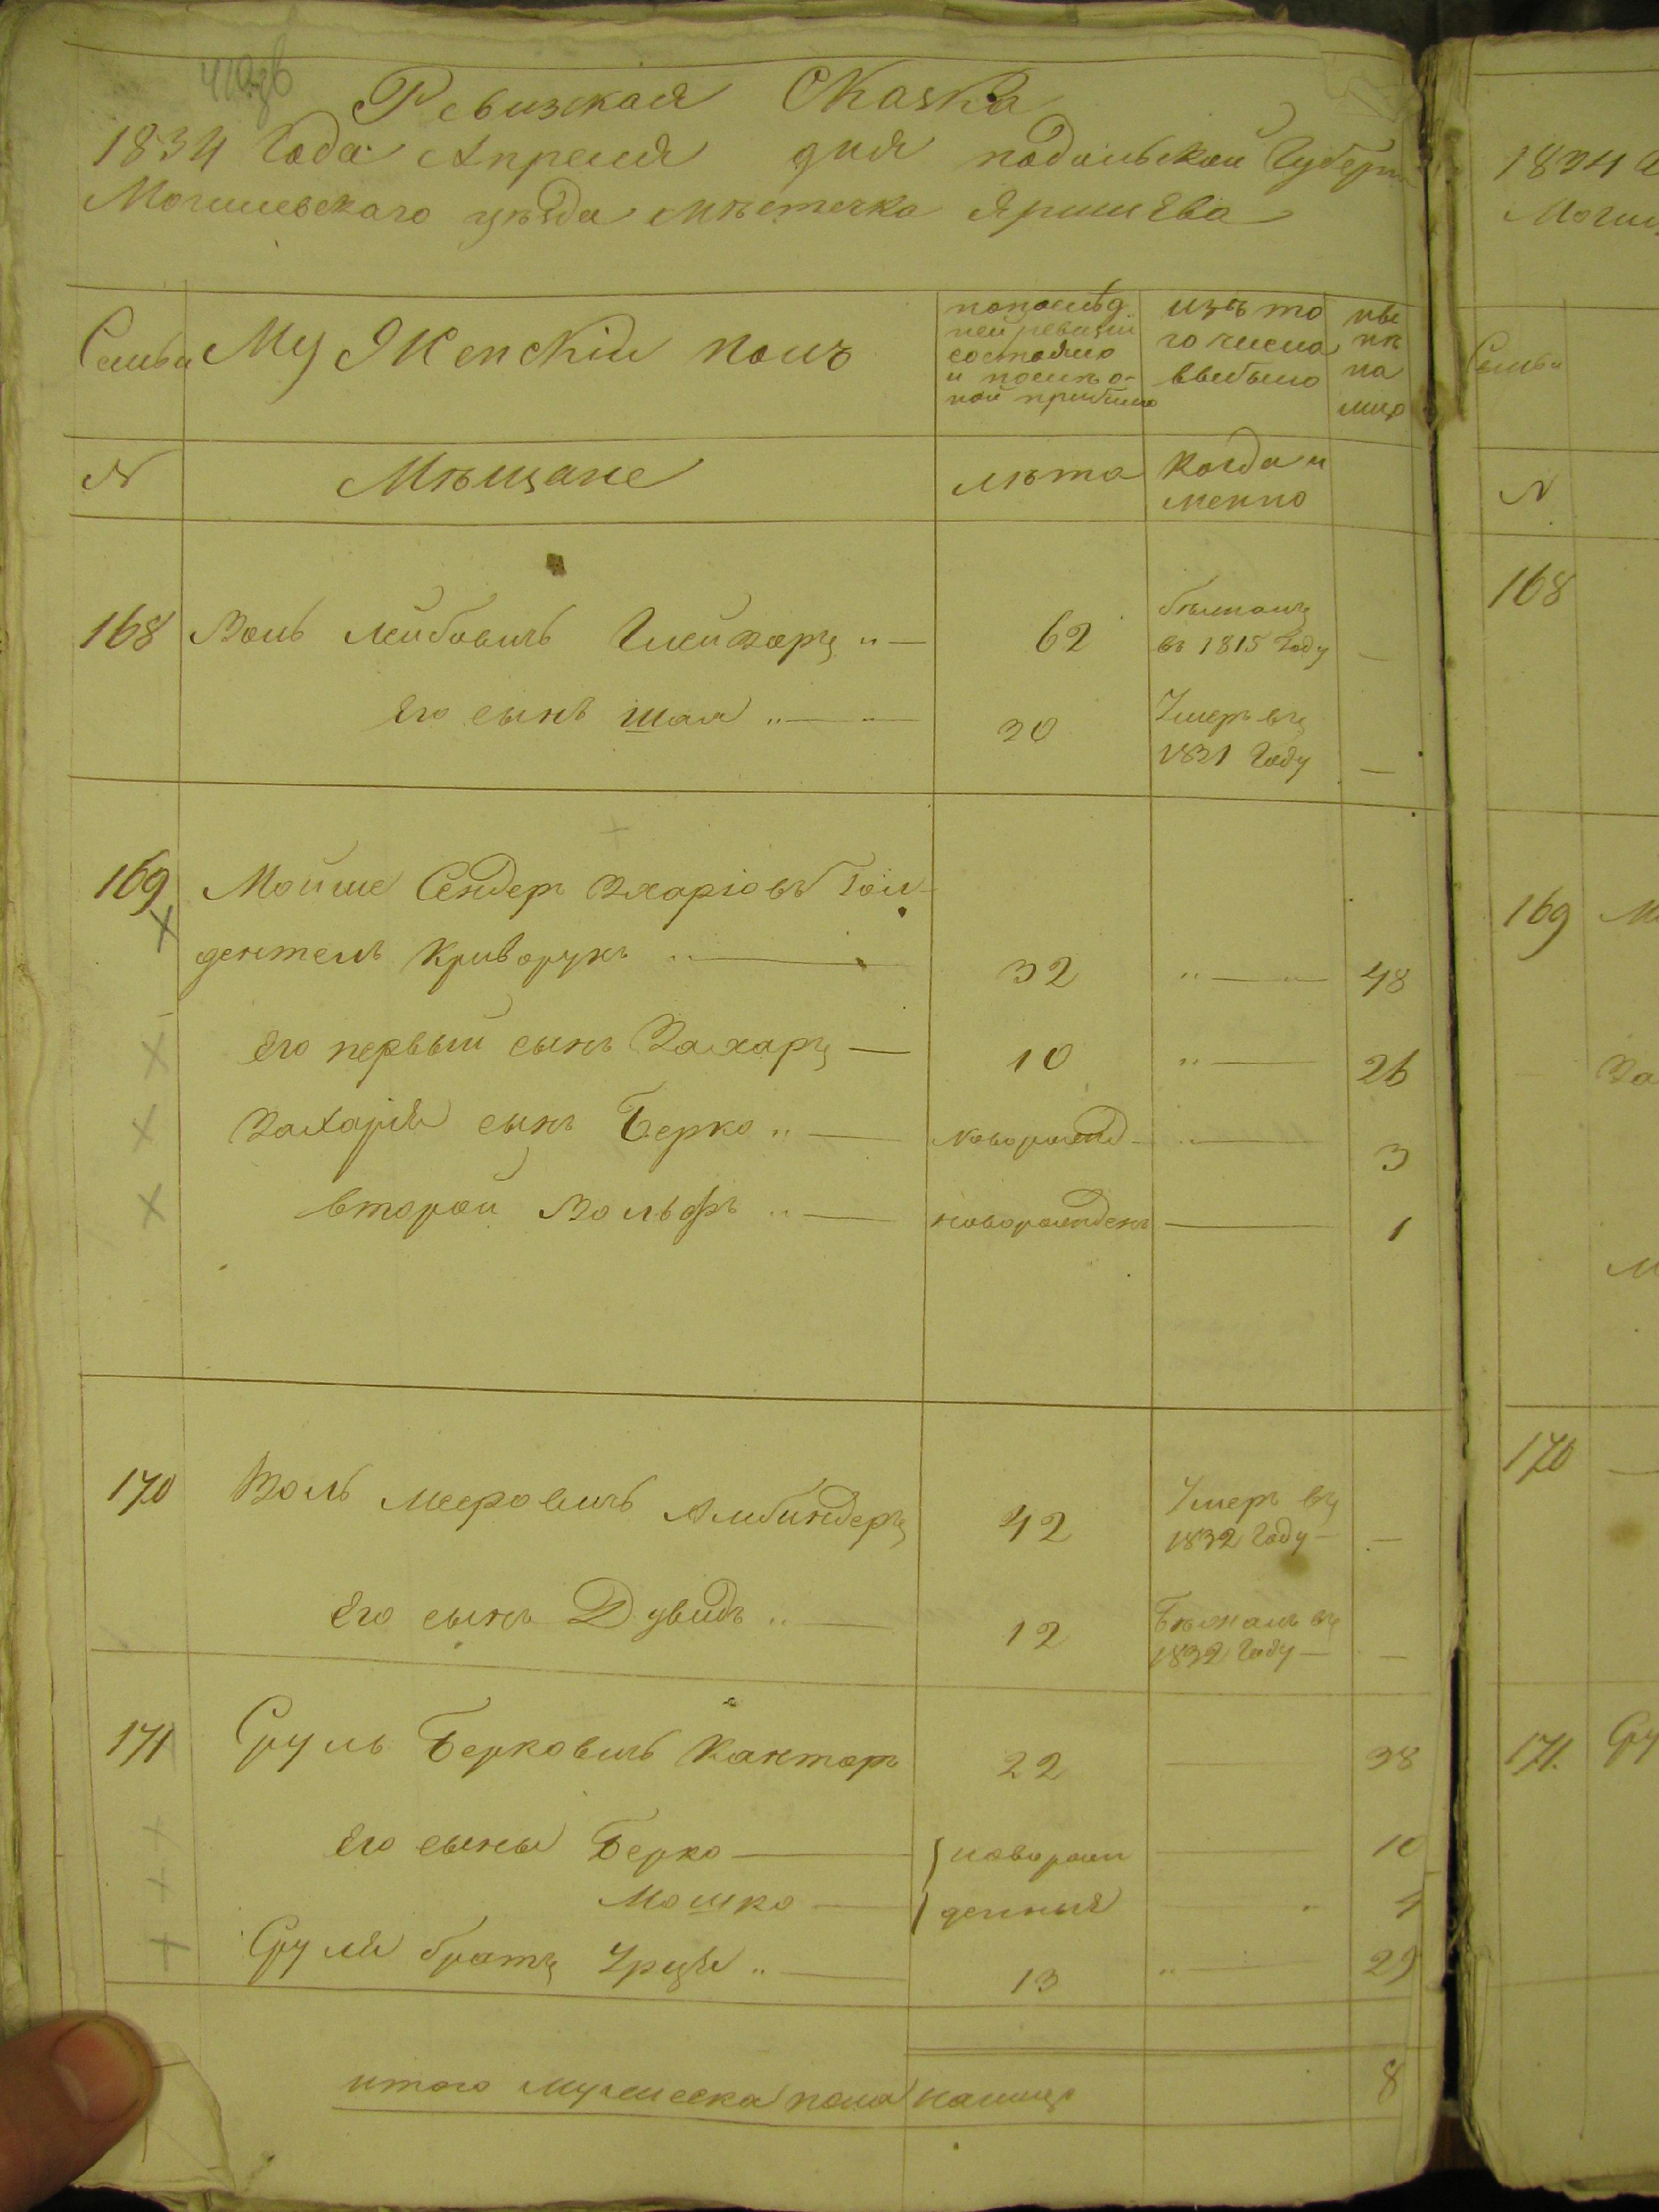 Ревизская Сказка
1834 Года Апреля дня подольской Губерн
Могилевскаго уѣзда мѣстечка Яришева
Семьи Мужескій полъ
попослѣд
ней ревизіи
состояло
и послѣ о-
ной прибыло
изъ то
го числа
выбыло
ны
нѣ
на
лицо
N Мѣщане лѣта когда и
менно
168 Волъ Лейбовичъ 62 бѣжалъ
въ 1815 Году —
Его сынъ Шая 20 Умеръ въ
1831 Году —
169 Мойше Сендеръ Гол
дентель Криворукъ 32 48
Его первый сынъ Захаръ 10 26
Захарія сынъ Берко новорожд 3
второй Вольфъ новорожденъ 1
170 Волъ Мееровичъ Амбиндеръ 42 Умеръ въ
1832 Году —
Его сынъ Дувидъ 12 Бѣжалъ въ
1832 Году —
171 Сруль Берковичъ Канторъ 22 38
Его сыны Берко новорож 10
Мошко денныя 4
Сруля братъ Урція 13 29
итого мужеска пола налицо 8
1834
Могил
Семьи
N
168
169 М
За
М
170
171. Сру